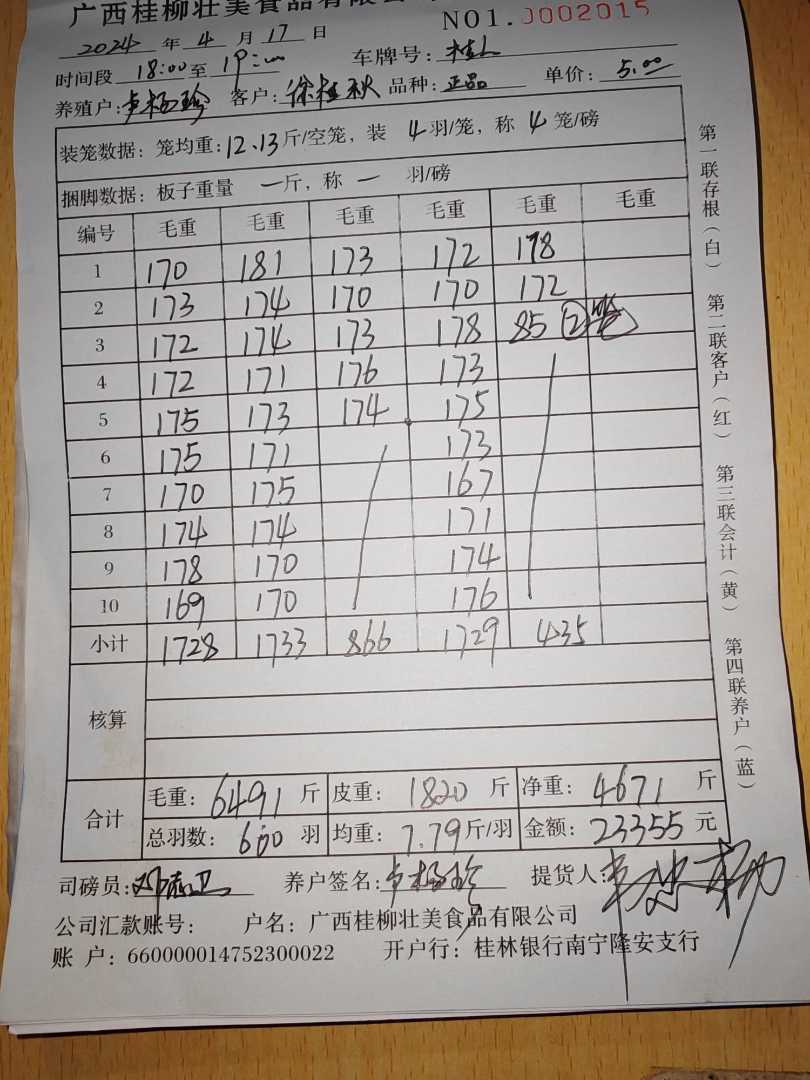 广西桂柳壮美食品有限公
NO1.0002015
2024 年 4 月 17 日
时间段 18:00 至 19: 车牌号:
养殖户:卢杨珍 客户:徐桂秋 品种:正品 单价:5.00
装笼数据:笼均重:12.13斤/空笼,装 4 羽/笼,称 4 笼/磅
捆脚数据:板子重量 一斤,称 一 羽/磅
编号 毛重 毛重 毛重 毛重 毛重 毛重
1 170 181 173 172 178
2 173 174 170 170 172
3 172 174 173 178 85 2笼
4 172 171 176 173
5 175 173 174 175
6 175 171 173
7 170 175 167
8 174 174 171
9 178 170 174
10 169 170 176
小计 1728 1733 866 1729 435
核算
合计 毛重:6491 斤 皮重:1820 斤 净重:4671 斤
总羽数:600 羽 均重:7.79斤/羽 金额:23355 元
司磅员:邓志卫 养户签名:卢杨珍 提货人:
公司汇款账号: 户名:广西桂柳壮美食品有限公司
账 户:660000014752300022 开户行:桂林银行南宁隆安支行
第一联存根(白) 第二联客户(红) 第三联会计(黄) 第四联养户(蓝)